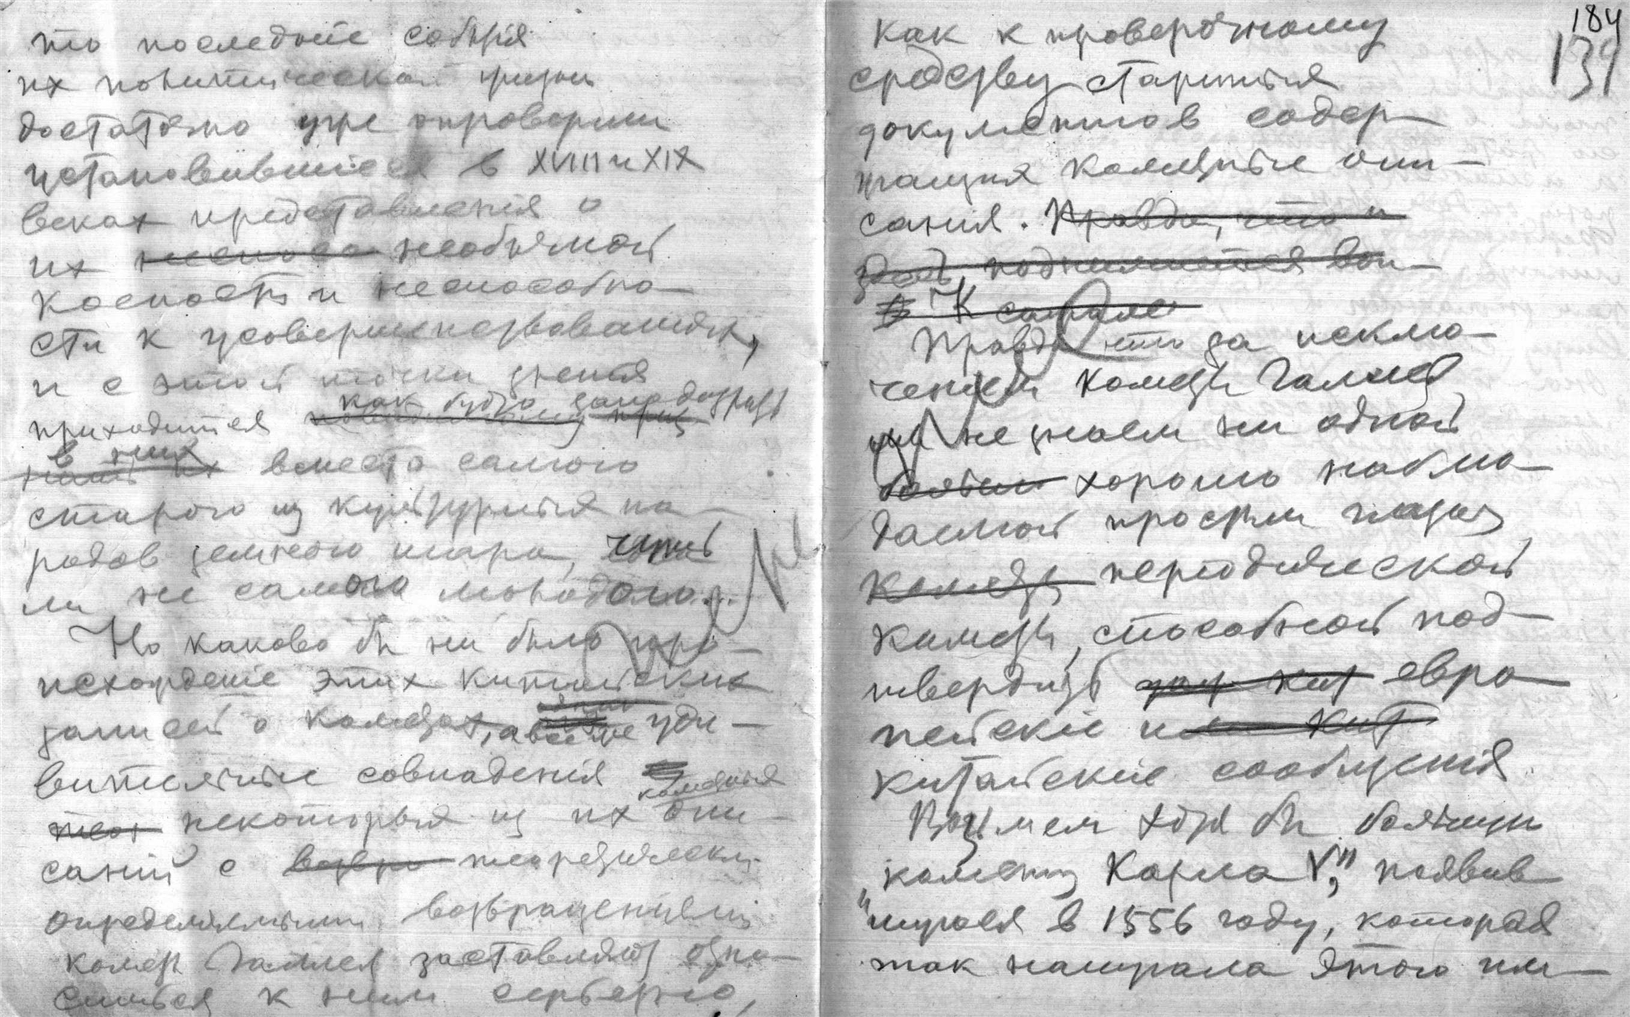 что последние события
их политической жизни
достаточно уже опровергли
установившиеся в XVIII и XIX
веках представления о
их неспосо необычной
косности и неспособно-
сти к усовершенствованиям,
и с этой точки зрения
как будто заподозрить
приходится
в них
вместо самого
старого из культурных на-
родов земного шара, чуть
ли не самого молодого...
Но каково бы ни было про-
исхождение этих Китайских
записей о кометах, а все же уди-
вительные совпадения
кометных
некоторых из их опи-
саний с теоретически
определяемыми возвращениями
кометы Галлея заставляют отно-
ситься к ним серьезно,
184
139
как к проверочному
средству старинных
документов содер-
жащих кометные опи-
сания. Правда, что и
здесь поднимается воп-
К сожале
Правда что за исклю-
чением кометы Галлея
мы не знаем ни одной
более хорошо наблю-
даемой простым глазом
кометы периодической
кометы, способной под-
твердить евро-
пейские и
китайские сообщения.
Возьмем хотя бы большую
"комету Карла V", появив-
шуюся в 1556 году, которая
так напугала этого им-